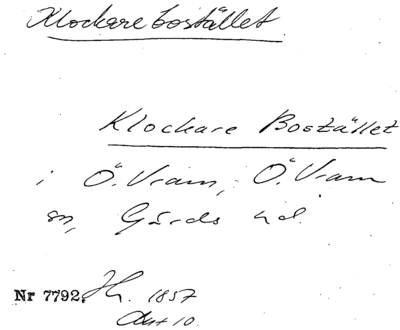 Klockarebostället
Klockare Bostället
i Ö. Vram, Ö. Vram
sn, Gärds hd.
Nr 7792. Jh. 1857
Akt 10.